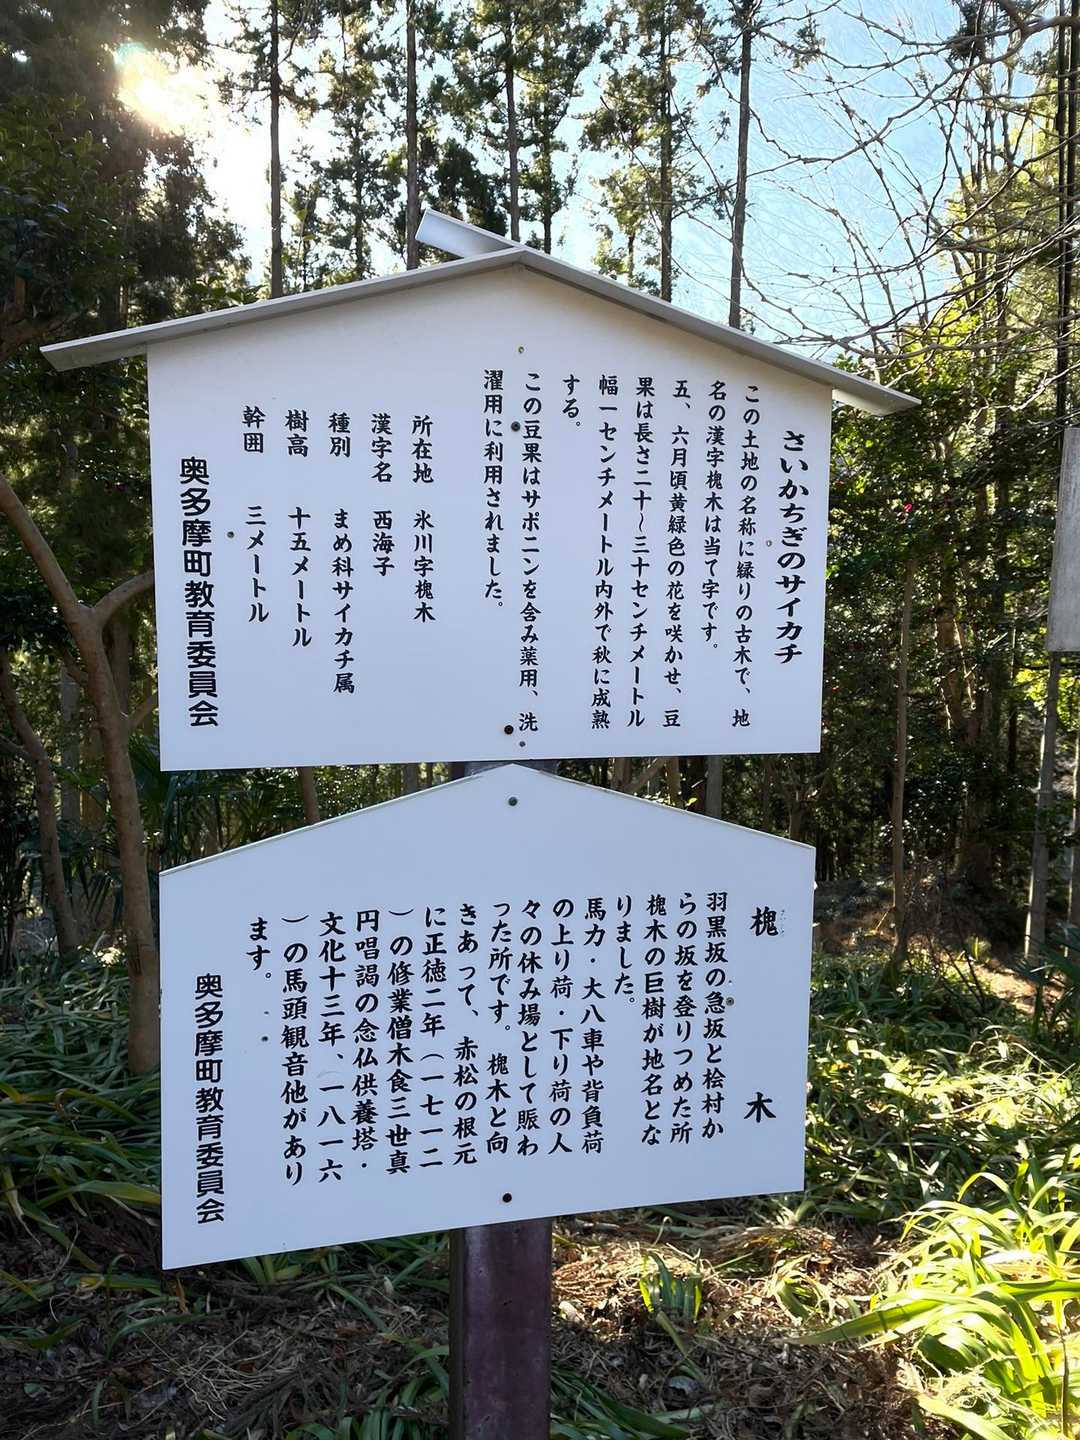 さいかちぎのサイカチ
この土地の名称に縁りの古木で、地
名の漢字槐木は当て字です。
五、六月頃黄緑色の花を咲かせ、豆
果は長さ二十〜三十センチメートル
幅一センチメートル内外で秋に成熟
する。
この豆果はサポニンを含み薬用、洗
濯用に利用されました。
所在地 氷川字槐木
漢字名 西海子
種別 まめ科サイカチ属
樹高 十五メートル
幹囲 三メートル
奥多摩町教育委員会
槐木
羽黒坂の急坂と桧村か
らの坂を登りつめた所
槐木の巨樹が地名とな
りました。
馬力・大八車や背負荷
の上り荷・下り荷の人
々の休み場として賑わ
った所です。槐木と向
きあって、赤松の根元
に正徳二年（一七一二
）の修業僧木食三世真
円唱謁の念仏供養塔・
文化十三年、一八一六
）の馬頭観音他があり
ます。
奥多摩町教育委員会